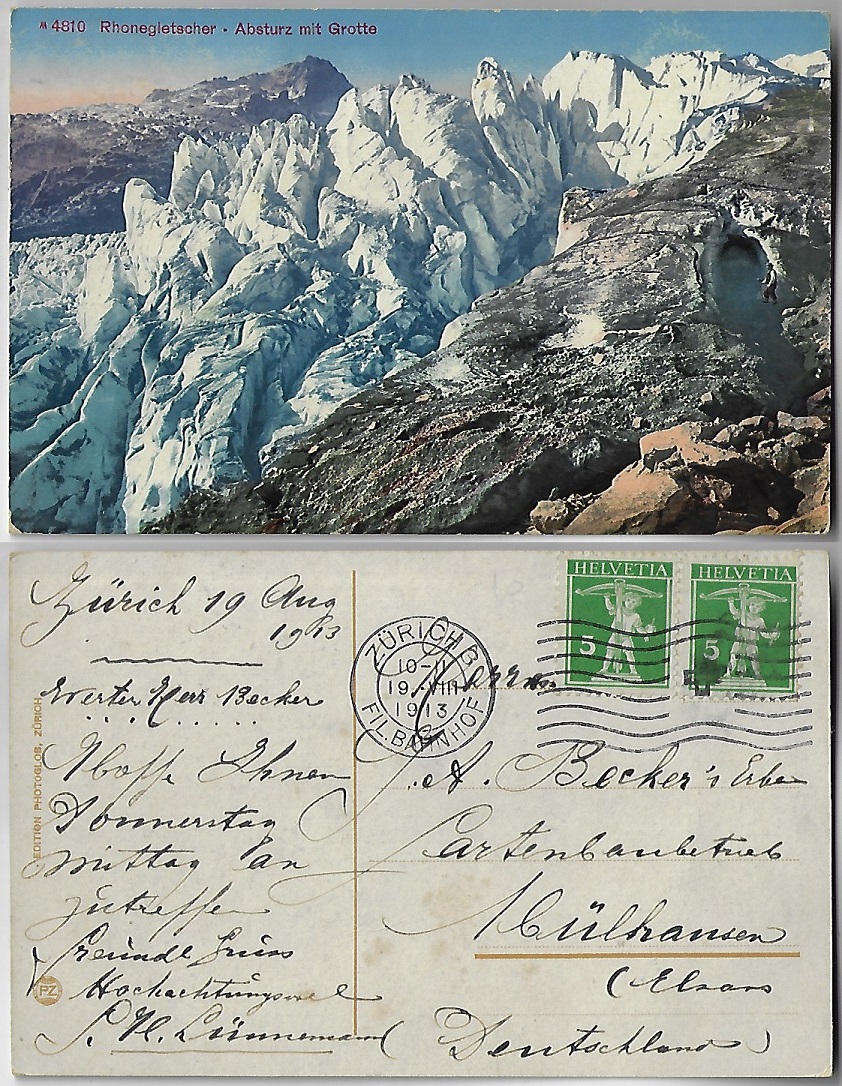 4810 Rhonegletscher · Absturz mit Grotte
Zürich 19 Aug
1913
Werter Herr Becker
Hoffe Ihnen
Donnerstag
mittag an
zutreffen
Freundl Gruss
Hochachtungsvoll
Lünnemann
EDITION PHOTOGLOB, ZÜRICH
PZ
ZÜRICH 3
10-11
19.VIII
1913
FIL.BAHNHOF
HELVETIA
5
HELVETIA
5
Herrn
J. A. Becker's Erben
Gartenbaubetrieb
Mülhausen
(Elsass
Deutschland)